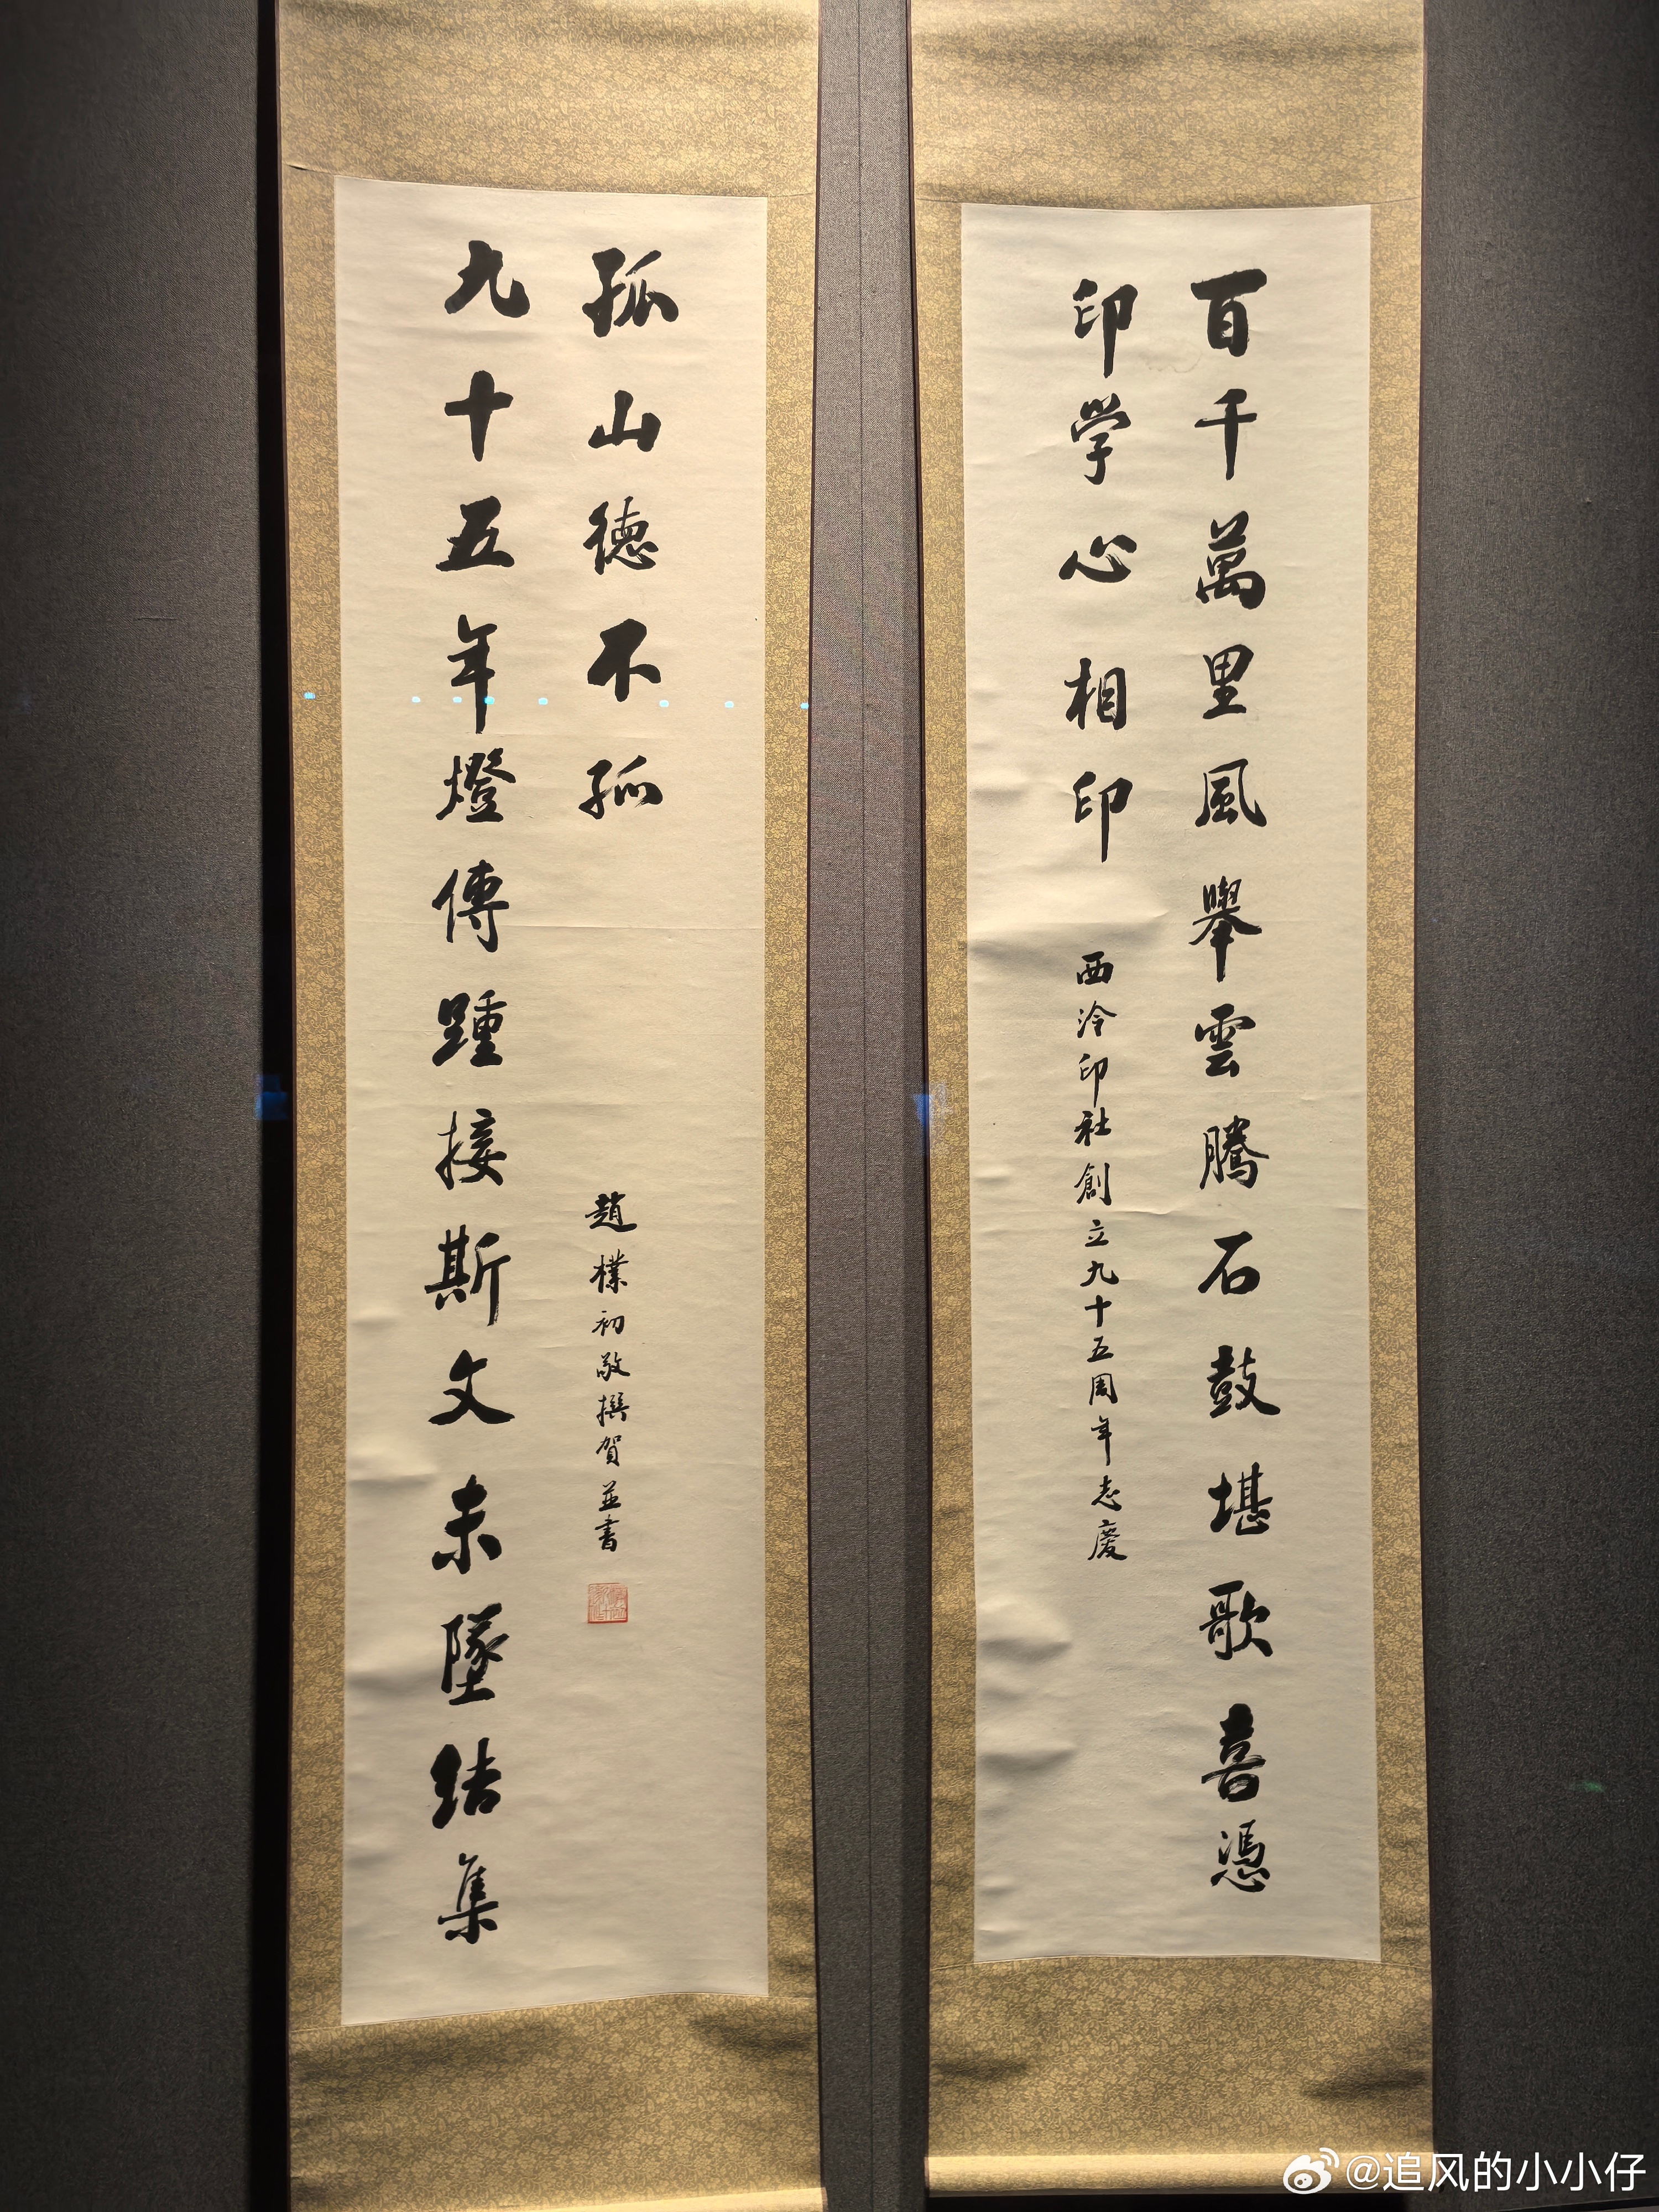 百千萬里風舉雲騰石鼓堪歌喜憑
印学心相印
西泠印社創立九十五周年志慶
九十五年燈傳踵接斯文未墜結集
孤山德不孤
趙樸初敬撰賀並書
@追风的小小仔